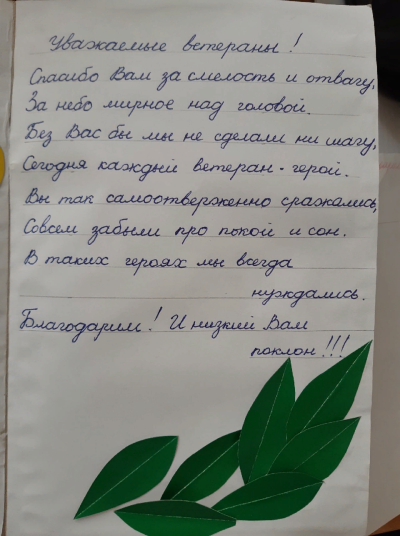 Уважаемые ветераны!
Спасибо Вам за смелость и отвагу,
За небо мирное над головой.
Без Вас бы мы не сделали ни шагу,
Сегодня каждый ветеран - герой.
Вы так самоотверженно сражались,
Совсем забыли про покой и сон.
В таких героях мы всегда
нуждались.
Благодарим! И низкий Вам
поклон!!!